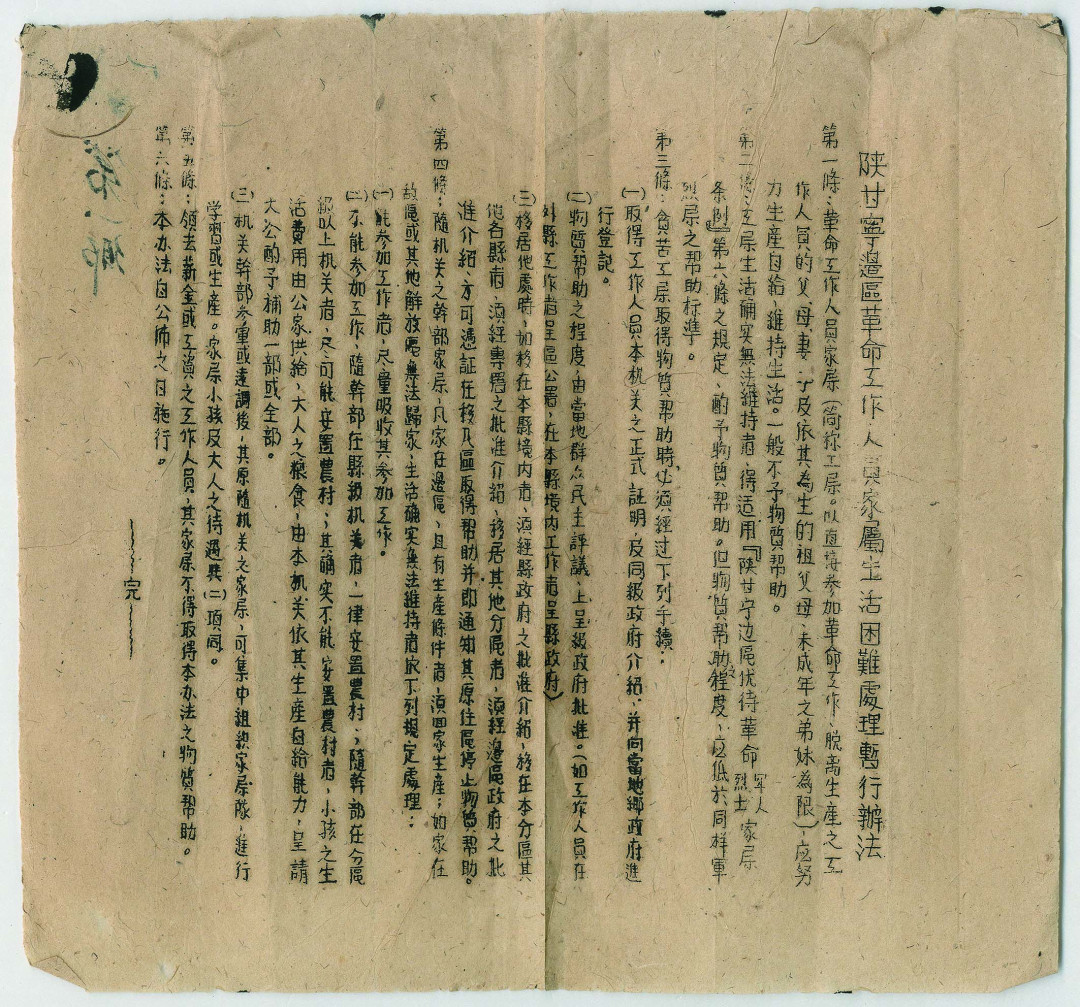 陕甘寧邊區革命工作人員家屬生活困難處理暫行辦法
第一條：革命工作人員家屬（简称工屬。以直接参加革命工作、脱离生産之工
作人員的父、母、妻、子及依其為生的祖父母、未成年之弟妹為限），应努
力生産自給，維持生活。一般不予物質帮助。
第二條：工屬生活确实無法維持者，得适用『陕甘宁边區优待革命軍人烈士家屬
条例』第六條之規定，酌予物質帮助。但物質帮助之程度，应低於同样軍
烈屬之帮助标準。
第三條：貧苦工屬取得物質帮助時必須經过下列手續：
㈠取得工作人員本机关之正式証明，及同級政府介紹，并向當地鄉政府進
行登記。
㈡物質帮助之程度，由當地群众民主評議，上呈級政府批准。（如工作人員在
外縣工作者呈區公署，在本縣境内工作者呈縣政府）
㈢移居他處時，如移在本縣境内者，須經縣政府之批准介紹，移在本分區其
他各縣者，須經專署之批准介紹，移居其他分區者，須經邊區政府之批
准介紹，方可憑証在移入區取得帮助并即通知其原住區停止物質帮助。
第四條：隨机关之幹部家屬，凡家在邊區，且有生産條件者，須回家生産；如家在
敌區或其他解放區無法歸家，生活确实無法維持者依下列規定處理：
㈠能参加工作者，尽量吸收其参加工作。
㈡不能参加工作，隨幹部在縣級机关者，一律安置農村；隨幹部在分區
級以上机关者，尽可能安置農村；其确实不能安置農村者，小孩之生
活費用由公家供給，大人之粮食，由本机关依其生産自給能力，呈請
大公酌予補助一部或全部。
㈢机关幹部参軍或遠調後，其原隨机关之家屬，可集中組织家屬隊，進行
學習或生産。家屬小孩及大人之待遇與㈡項同。
第五條：領去薪金或工資之工作人員，其家屬不得取得本办法之物質帮助。
第六條：本办法自公佈之日施行。
完
第一鄉